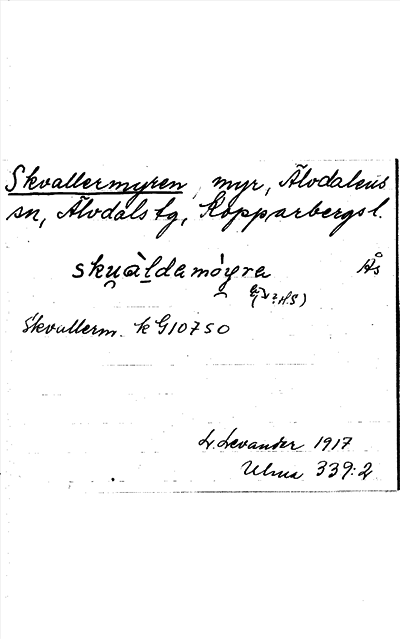 Skvallermyren, myr, Älvdalens
sn, Älvdals tg, Kopparbergs l.
skuàldamó̀yra Ås
Skvallerm. k G10750
L. Levander 1917
Ulma 339:2